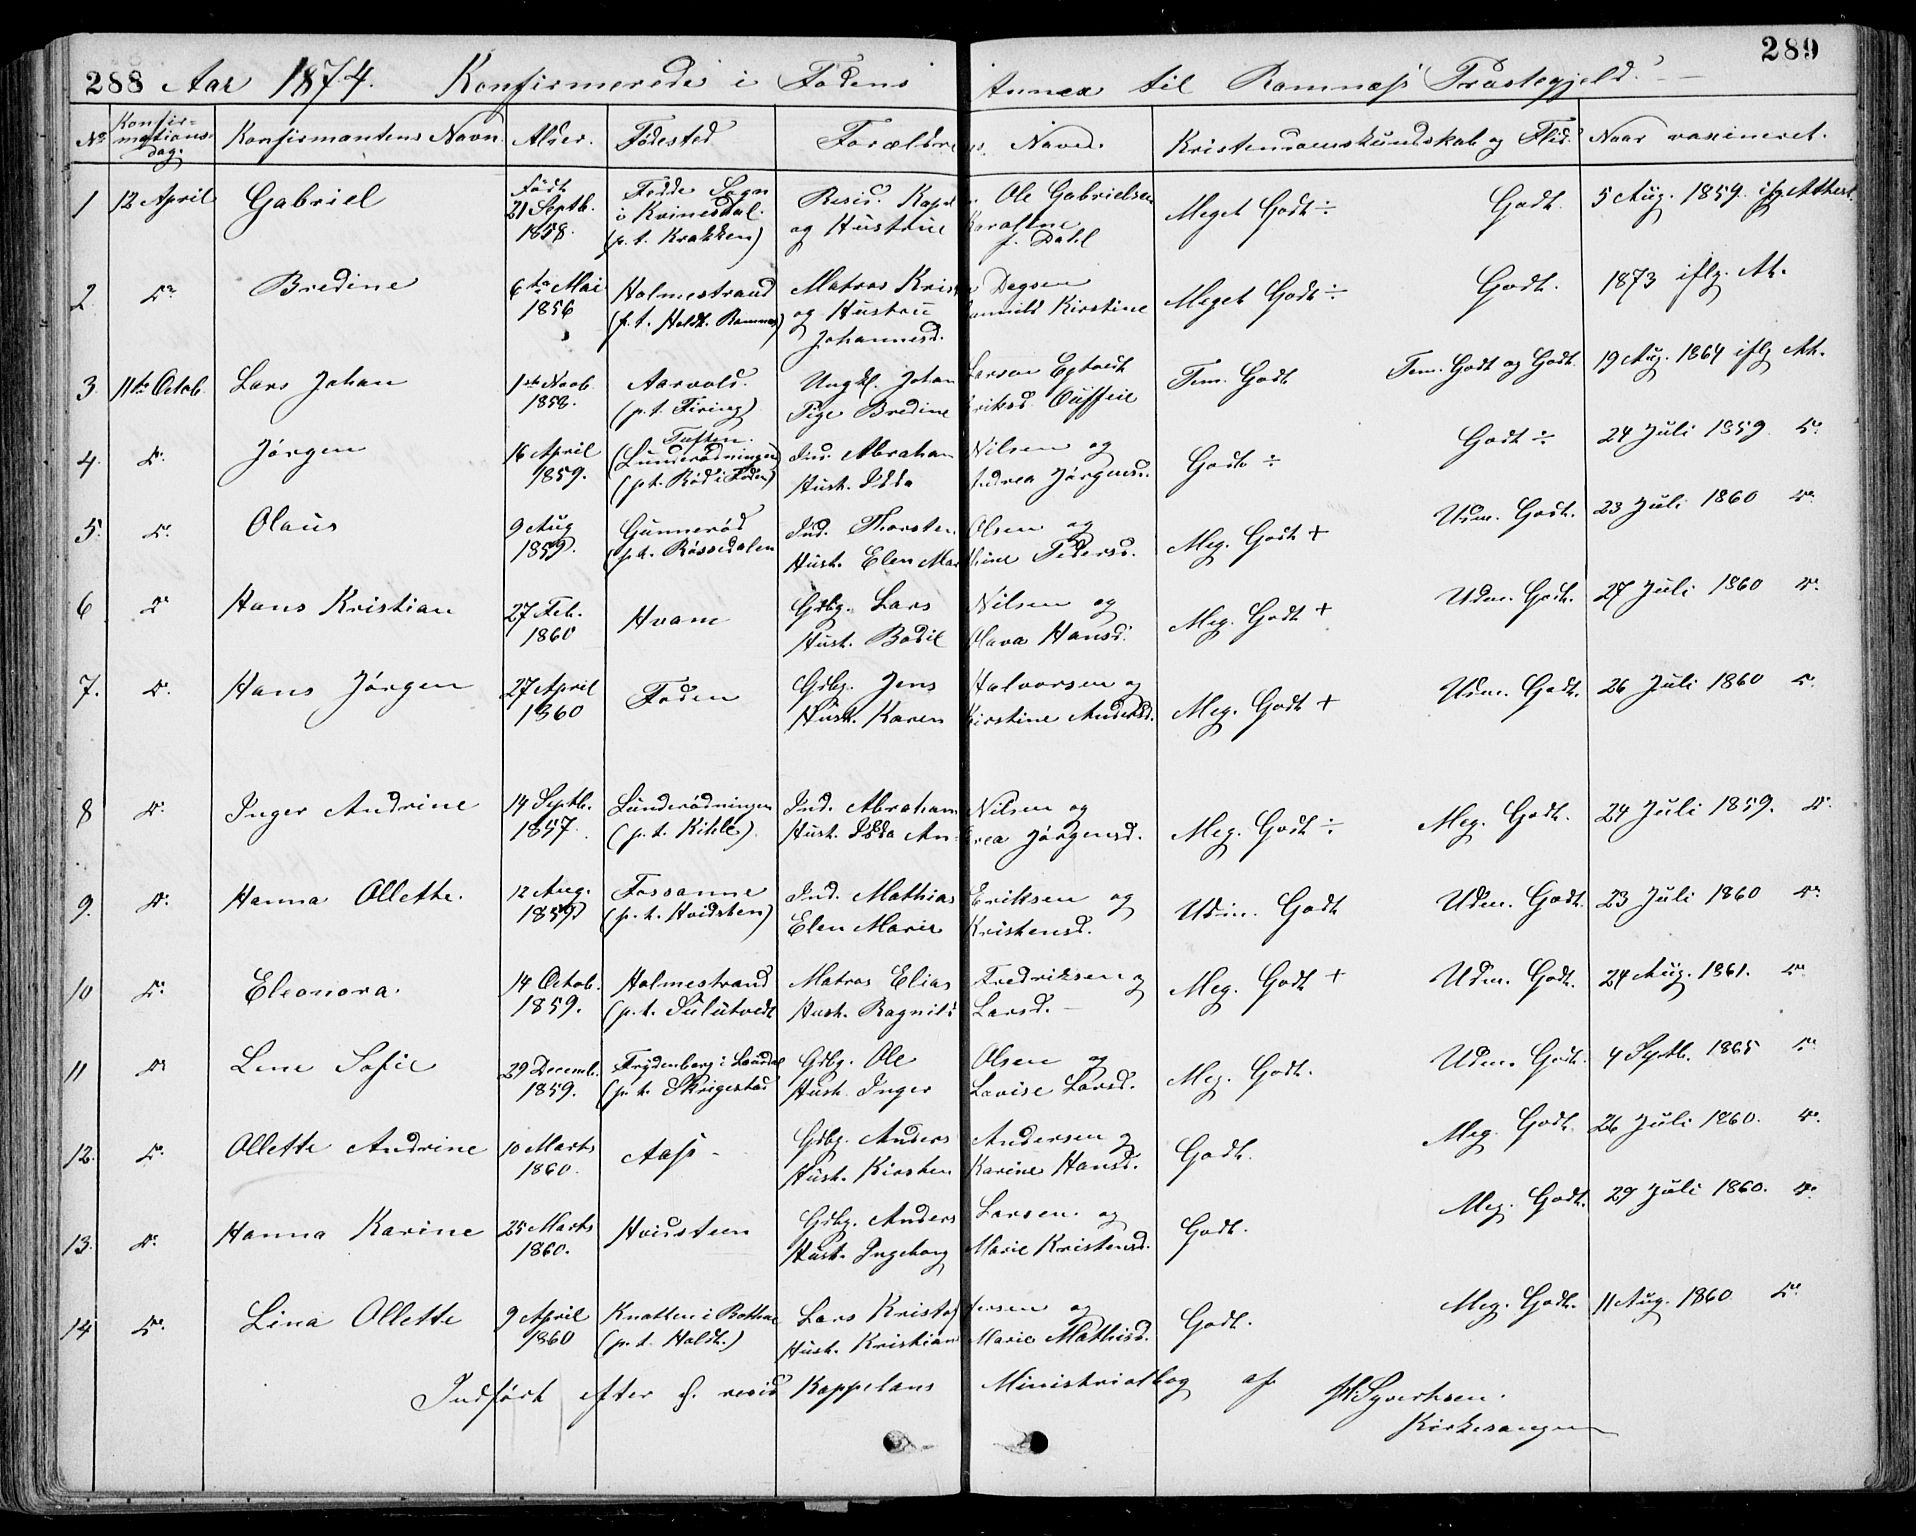 288 Aar 1874. Konfirmerede i Fodens Annex til Ramnæs Præstegjeld. 289
No Konfirmations-dag. Konfirmantens Navn Alder. Fødested Forældrenes Navne. Kristendomskundskab og Flid. Naar vaxineret.
1 12 April Gabriel Født 21 Septb. 1858. Fedde Sogn i Kvinesdal. (p. t. Krakken) Resid. Kapel. Ole Gabrielsen og Hustrue f. Dahl Meget Godt ÷ Godt. 5 Aug. 1859. iflg. Attest.
2 Do Bredine 6te Mai 1856 Holmestrand (p. t. Holdt. Ramnæs) Matros Dagsen og Hustru Kirstine Johannesd. Meget Godt ÷ Godt. 1873 iflg. At.
3 11te Octob. Lars Johan 1ste Novb. 1858. Aarvold. (p. t. Firing) Ungkl. Johan Larsen Pige Bredine Eriksd. Tem. Godt Tem. Godt og Godt. 19 Aug. 1864 iflg At.
4. Do Jørgen 16 April 1859. Toften. (Lunderødningen) (p. t. Rød i Foden) Ind. Abraham Nilsen og Hust. Andrea Jørgensd. Godt ÷ Godt ÷ 24 Juli 1859. Do
5. Do Olaus 9 Aug 1859. Gunnerød (p. t. Røssedalen Ind. Thorsten Olsen og Hust. Elen Mathine Pedersd. Meg. Godt + Udm. Godt. 23 Juli 1860 Do
6 Do Hans Kristian 27 Feb. 1860 Hvam Gdbg. Lars Nilsen og Hust. Bodil Olava Hansd. Meg. Godt + Udm. Godt. 27 Juli 1860 Do
7. Do Hans Jørgen 27 April 1860 Foden Gdbg. Jens Halvorsen og Hust. Karen Kirstine Andersd. Meg. Godt + Udm. Godt. 26 Juli 1860 Do
8 Do Inger Andrine 14 Septb. 1857. Lunderødningen (p. t. Kihle) Ind. Abraham Nilsen og Hust. Andrea Jørgensd. Meg. Godt ÷ Meg. Godt. 24 Juli 1859. Do
9. Do Hanna Ollette. 12 Aug. 1859 Fossanne (p. t. Hvidsten) Ind. Mathias Eriksen og Elen Marie Kristensd. Udm. Godt Udm. Godt. 23 Juli 1860 Do
10 Do Eleonora. 14 Octob. 1859. Holmestrand (p. t. Sulutvedt Matros Elias Fredriksen og Hust. Ragnild Larsd. Meg. Godt + Udm. Godt. 24 Aug. 1861. Do
11 Do Lene Sofie 29 Decemb. 1859. Frydenberg i Laurdal (p. t. Skrigestad Gdbg. Ole Olsen og Hust. Inger Lovise Larsd. Meg. Godt. Udm. Godt. 4 Septb. 1865 Do
12. Do Ollette Andrine 10 Marts 1860. Aass Gdbg. Anders Andersen og Hust. Kirsten Karine Hansd. Godt. Meg. Godt. 26 Juli 1860. Do
13. Do Hanna Karine 25 Marts 1860. Hvidsteen Gdbg. Anders Larsen og Hust. Ingeborg Marie Kristensd. Godt. Meg. Godt. 29 Juli 1860. Do
14 Do Lina Ollette 9 April 1860 Knatten i Botne (p. t. Holdt.) Lars Kristofersen og Hust. Kristiane Marie Mathisd. Godt. Meg. Godt. 11 Aug. 1860 Do
Indført efter h. resid Kappelans Ministrialbog af Syvertsen.
Kirkesanger